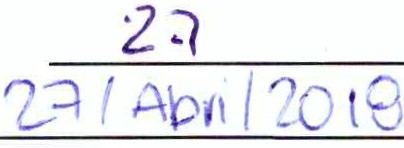 27
27/Abril/2019